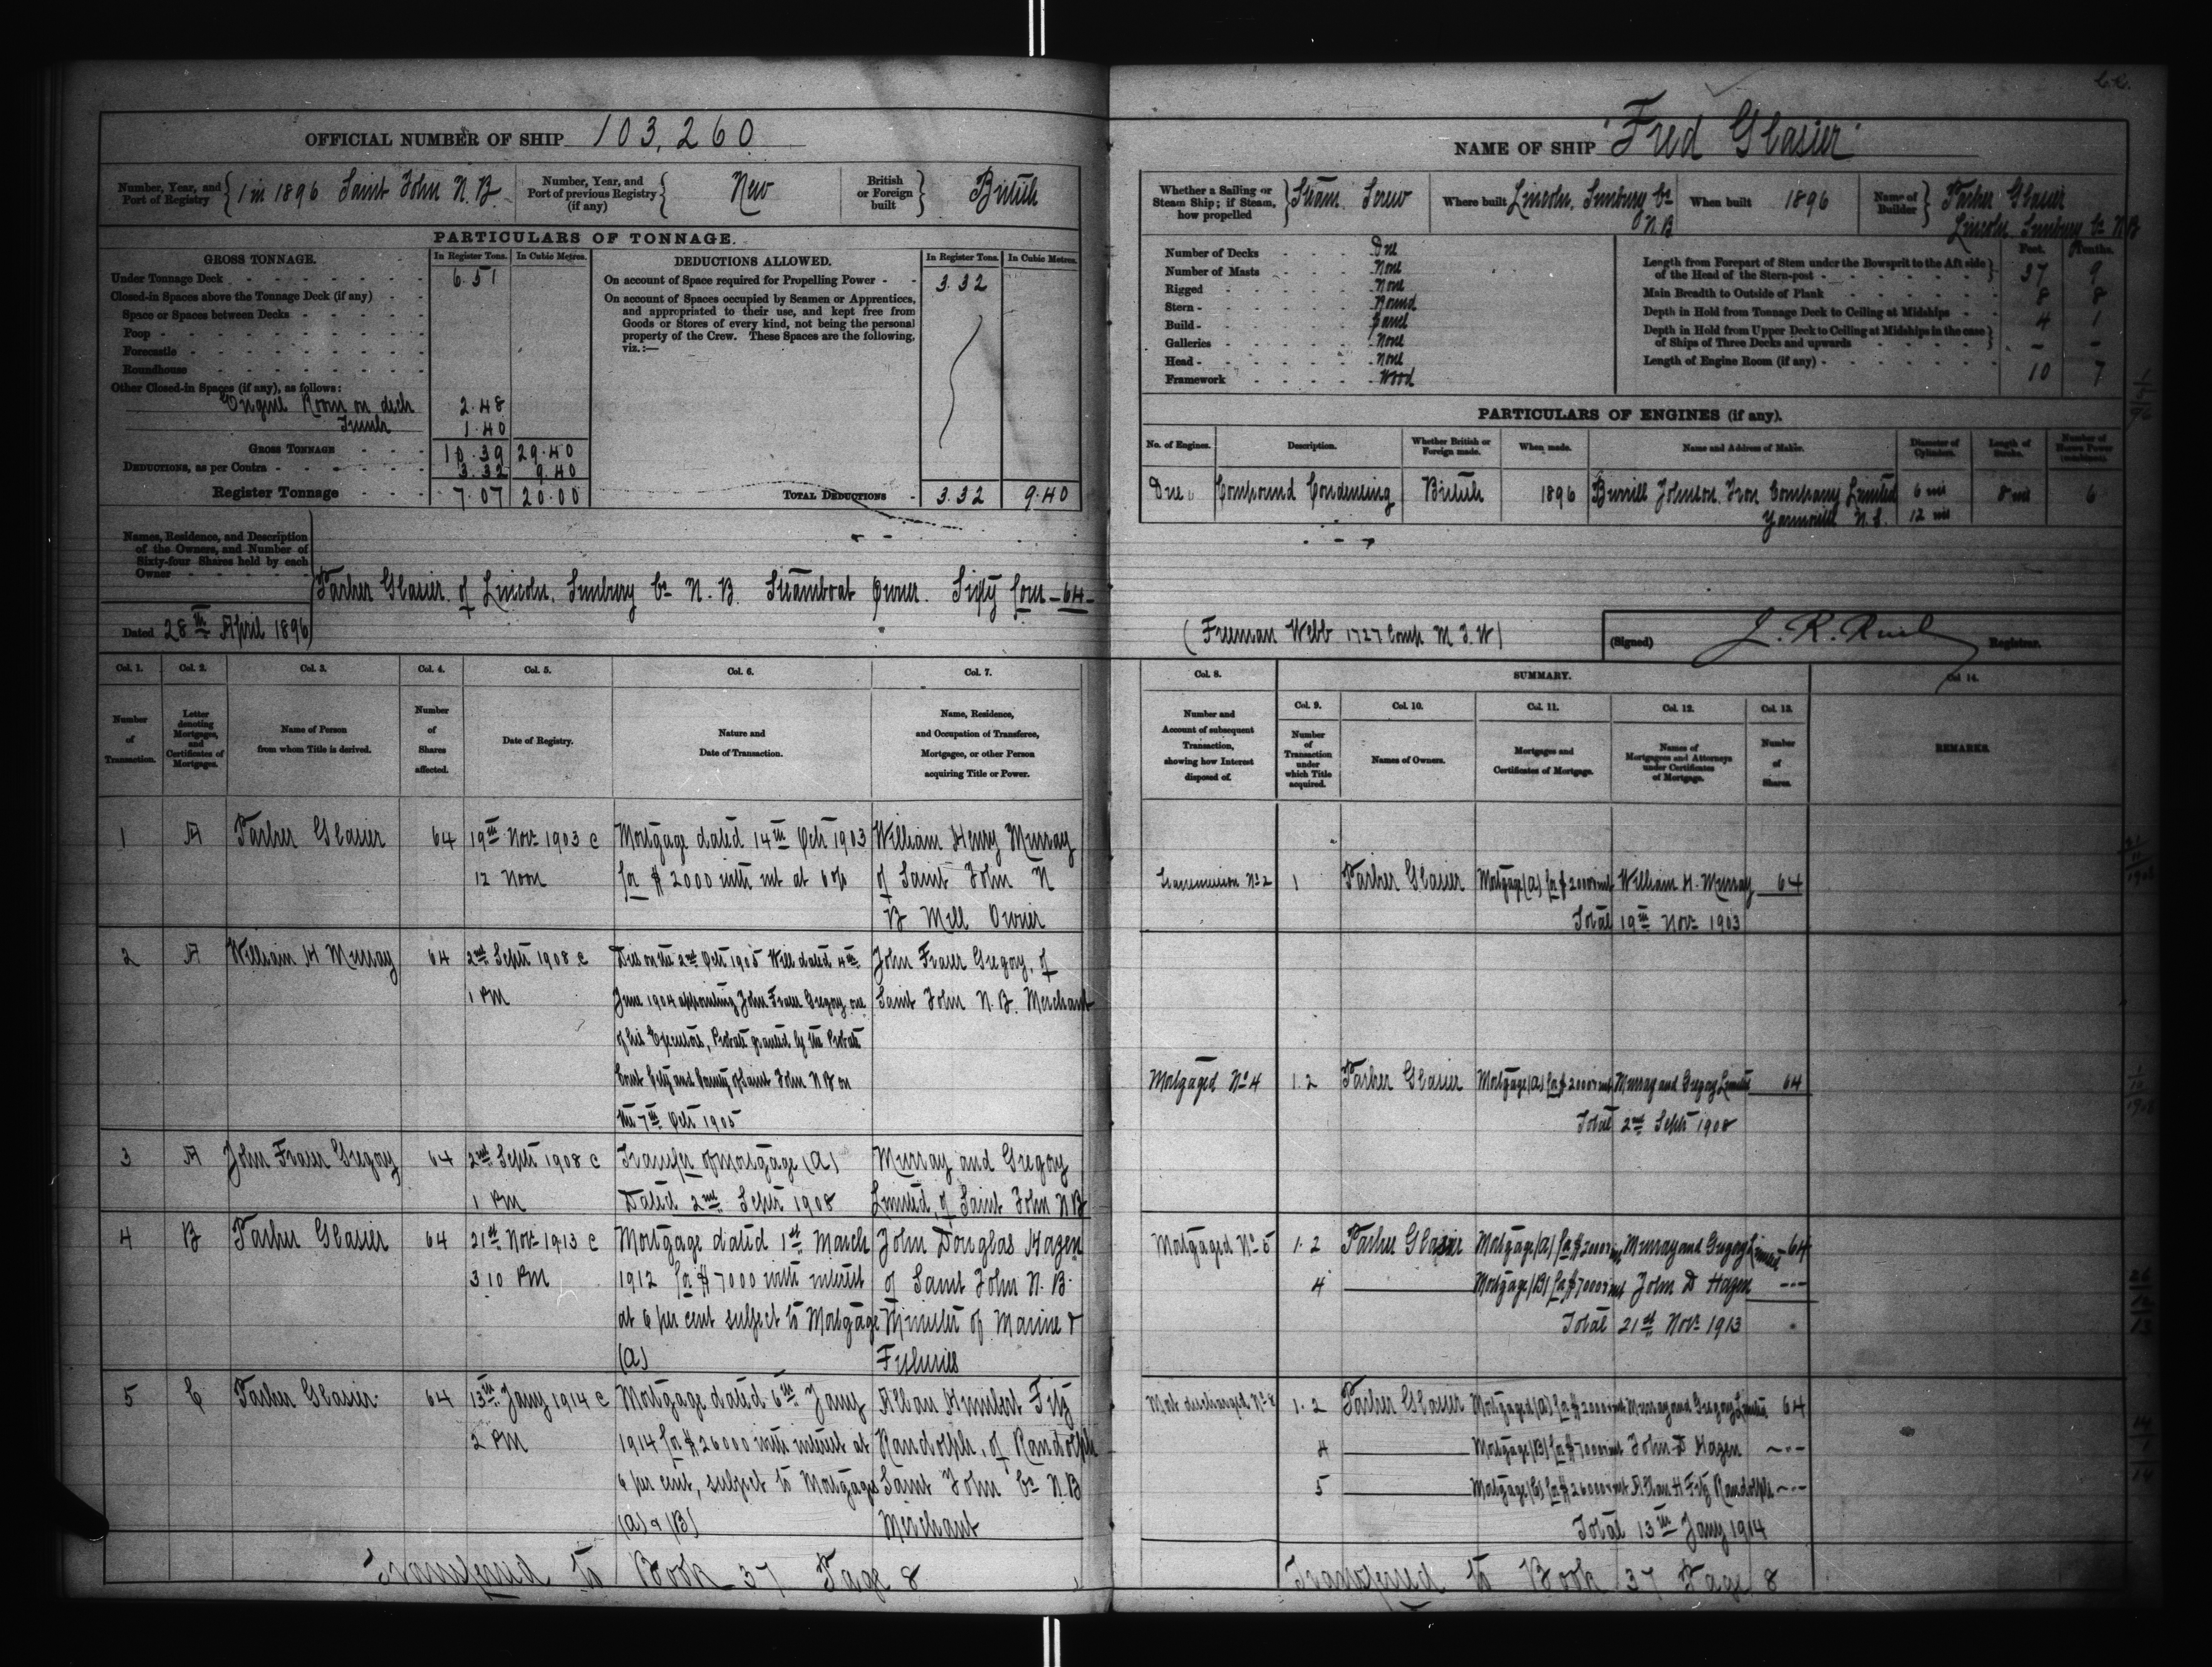 OFFICIAL NUMBER OF SHIP 103,260
Number, Year, and Port of Registry { 1 in 1896 Saint John N.B.
Number, Year, and Port of previous Registry (if any) { New
British or Foreign built } British
PARTICULARS OF TONNAGE.
GROSS TONNAGE. In Register Tons. In Cubic Metres.
Under Tonnage Deck 6.51
Closed-in Spaces above the Tonnage Deck (if any)
Space or Spaces between Decks
Poop
Forecastle
Roundhouse
Other Closed-in Spaces (if any), as follows:
Engine Room on deck 2.48
1.40
GROSS TONNAGE 10.39 29.40
DEDUCTIONS, as per Contra 3.32 9.40
Register Tonnage 7.07 20.00
DEDUCTIONS ALLOWED. In Register Tons. In Cubic Metres.
On account of Space required for Propelling Power 3.32
On account of Spaces occupied by Seamen or Apprentices,
and appropriated to their use, and kept free from
Goods or Stores of every kind, not being the personal
property of the Crew. These Spaces are the following,
viz.:—
TOTAL DEDUCTIONS 3.32 9.40
Names, Residence, and Description
of the Owners, and Number of
Sixty-four Shares held by each
Owner
Parker Glasier of Lincoln, Sunbury Co N.B. Steamboat Owner. Sixty four - 64 -
Dated 28th April 1896
Col. 1. Col. 2. Col. 3. Col. 4. Col. 5. Col. 6. Col. 7.
Number of Transaction.
Letter denoting Mortgages, and Certificates of Mortgages.
Name of Person from whom Title is derived.
Number of Shares affected.
Date of Registry.
Nature and Date of Transaction.
Name, Residence, and Occupation of Transferee, Mortgagee, or other Person acquiring Title or Power.
1 A Parker Glasier 64 19th Novr 1903 c Mortgage dated 14th Octr 1903 William Henry Murray
12 Noon for $2000 with int at 6% of Saint John N
B Mill Owner
2 A William H Murray 64 2nd Septr 1908 c Died on the 2nd Octr 1905 Will dated 4th John Fraser Gregory, of
1 PM June 1904 appointing John Fraser Gregory one Saint John N.B. Merchant
of his Executors, Probate granted by the Probate
Court City and County of Saint John N B on
the 7th Octr 1905
3 A John Fraser Gregory 64 2nd Septr 1908 c Transfer of Mortgage (A) Murray and Gregory
1 PM Dated 2nd Septr 1908 Limited, of Saint John N B
4 B Parker Glasier 64 21st Novr 1913 c Mortgage dated 1st March John Douglas Hazen
3 10 PM 1912 for $7000 with interest of Saint John N.B.
at 6 per cent subject to Mortgage Minister of Marine &
(A) Fisheries
5 C Parker Glasier 64 13th Jany 1914 c Mortgage dated 6th Jany Allan Humbert Fitz
2 PM 1914 for $26000 with interest at Randolph, of Randolph
6 per cent, subject to Mortgage Saint John Co N.B
(A) & (B) Merchant
Transferred to Book 37 Page 8
NAME OF SHIP "Fred Glasier"
Whether a Sailing or Steam Ship; if Steam, how propelled } Steam Screw
Where built Lincoln, Sunbury Co N.B
When built 1896
Name of Builder } Parker Glasier
Lincoln Sunbury Co N.B
Number of Decks One
Number of Masts None
Rigged None
Stern Round
Build
Galleries None
Head None
Framework Wood
Feet. Tenths.
Length from Forepart of Stem under the Bowsprit to the Aft side of the Head of the Stern-post 37 9
Main Breadth to Outside of Plank 8 8
Depth in Hold from Tonnage Deck to Ceiling at Midships 4 1
Depth in Hold from Upper Deck to Ceiling at Midships in the case of Ships of Three Decks and upwards - -
Length of Engine Room (if any) 10 7
PARTICULARS OF ENGINES (if any).
No. of Engines. Description. Whether British or Foreign made. When made. Name and Address of Maker. Diameter of Cylinders. Length of Stroke. Number of Horses Power (combined).
One Compound Condensing British 1896 Burrill Johnson Iron Company Limited 6 ins 8 ins 6
Yarmouth N.S. 12 ins
(Freeman Webb 1727 Comp. M.S.W)
(Signed) J. R. Ruel Registrar.
Col. 8. SUMMARY. Col. 14.
Col. 9. Col. 10. Col. 11. Col. 12. Col. 13.
Number and Account of subsequent Transaction, showing how Interest disposed of.
Number of Transaction under which Title acquired.
Names of Owners.
Mortgages and Certificates of Mortgage.
Names of Mortgagees and Attorneys under Certificates of Mortgage.
Number of Shares.
REMARKS.
Transmission No 2 1 Parker Glasier Mortgage (A) for $2000 & int William H. Murray 64
Total 19th Novr 1903
Mortgaged No 4 1.2 Parker Glasier Mortgage (A) for $2000 & int Murray and Gregory Limited 64
Total 2nd Septr 1908
Mortgaged No 5 1.2 Parker Glasier Mortgage (A) for $2000 & int Murray and Gregory Limited 64
4 Mortgage (B) for $7000 & int John D Hazen ---
Total 21st Novr 1913
Mort discharged No 8 1.2 Parker Glasier Mortgaged (A) for $2000 & int Murray and Gregory Limited 64
4 Mortgage (B) for $7000 & int John D Hazen ---
5 Mortgage (C) for $26000 & int Allan H Fitz Randolph ---
Total 13th Jany 1914
Transferred to Book 37 Page 8